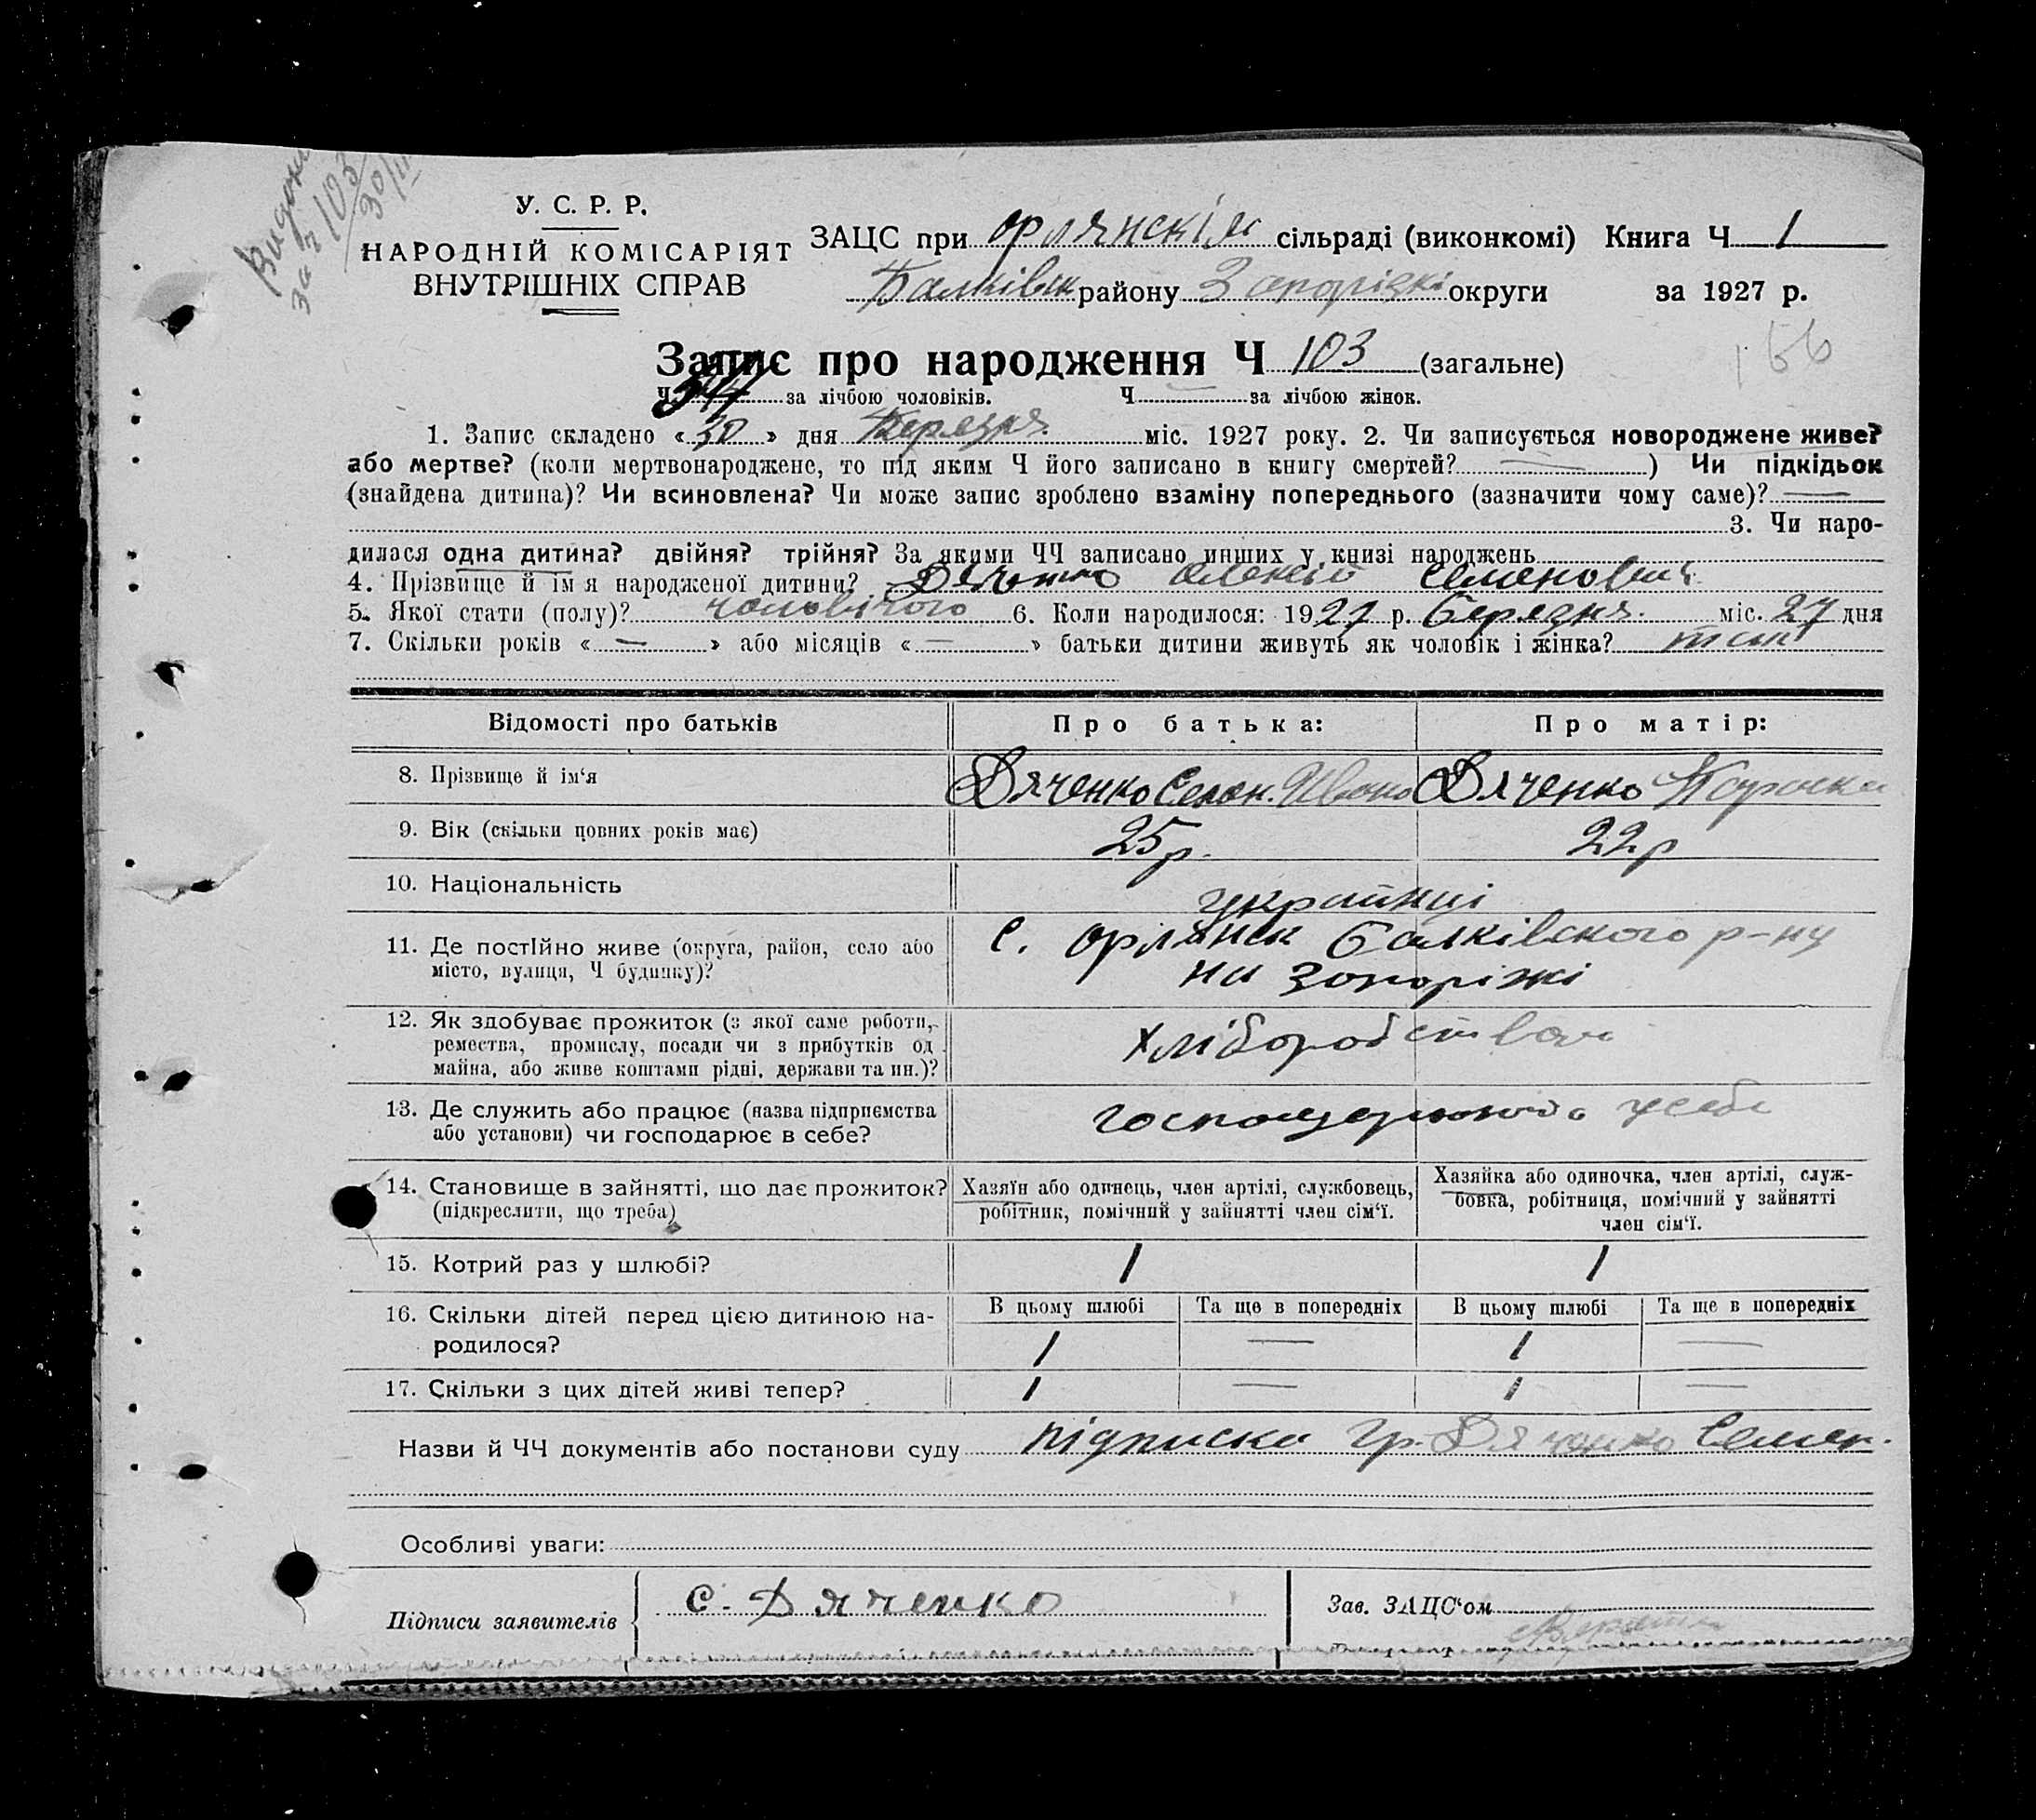 У. С. Р. Р.
НАРОДНІЙ КОМІСАРІЯТ
ВНУТРІШНІХ СПРАВ
за ч 103
30/III
ЗАЦС при Орлянскім сільраді (виконкомі) Книга Ч 1
Балківськ району Запорізькі округи за 1927 р.
166
Запис про народження Ч 103 (загальне)
Ч за лічбою чоловіків. Ч — за лічбою жінок.
1. Запис складено « 30 » дня Березня міс. 1927 року. 2. Чи записується новороджене живе?
або мертве? (коли мертвонароджене, то під яким Ч його записано в книгу смертей? — ) Чи підкідьок
(знайдена дитина)? Чи всиновлена? Чи може запис зроблено взаміну попереднього (зазначити чому саме)? —
3. Чи наро-
дилася одна дитина? двійня? трійня? За якими ЧЧ записано инших у книзі народжень
4. Прізвище й імя народженої дитини? Алексій Семенович
5. Якої стати (полу)? чоловічого 6. Коли народилося: 1927 р. Березня міс. 27 дня
7. Скільки років « — » або місяців « — » батьки дитини живуть як чоловік і жінка?
Відомості про батьків Про батька: Про матір:
8. Прізвище й ім‘я Дяченко Семен. Ивано Дяченко
9. Вік (скільки повних років має) 25 р. 22 р
10. Національність українці
11. Де постІйно живе (округа, район, село або С. Орлянск Балківського р-ну
місто, вулиця, Ч будинку)? на Запоріжжі
12. Як здобуває прожиток (з якої саме роботи,
ремества, промислу, посади чи з прибутків од Хліборобством
майна, або живе коштами рідні, держави та ин.)?
13. Де служить або працює (назва підприємства
або установи) чи господарює в себе? у себе
14. Становище в зайнятті, що дає прожиток? Хазяїн або одинець, член артілі, службовець, Хазяйка або одиночка, член артілі, служ-
(підкреслити, що треба) робітник, помічний у зайнятті член сім‘ї. бовка, робітниця, помічний у зайнятті
член сім‘ї.
15. Котрий раз у шлюбі? 1 1
16. Скільки дітей перед цією дитиною на- В цьому шлюбі Та ще в попередніх В цьому шлюбі Та ще в попередніх
родилося? 1 — 1 —
17. Скільки з цих дітей живі тепер? 1 — 1 —
Назви й ЧЧ документів або постанови суду підписка гр. Дяченко Семен.
Особливі уваги:
Підписи заявителів С. Дяченко Зав. ЗАЦС‘ом